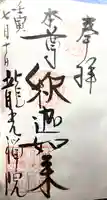 奉拝
本尊釈迦如来
壬寅
七月十日
龍光禅院